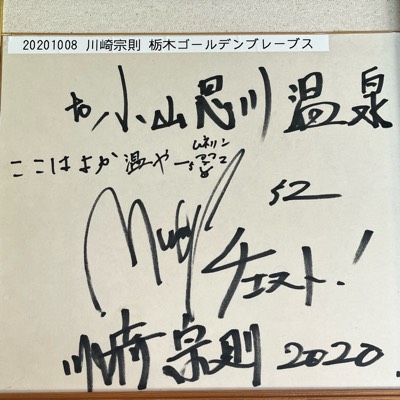 20201008 川崎宗則 栃木ゴールデンブレーブス
to 小山思川温泉
ここはよか温やー
ムネリン
52
チェスト!
川崎宗則 2020